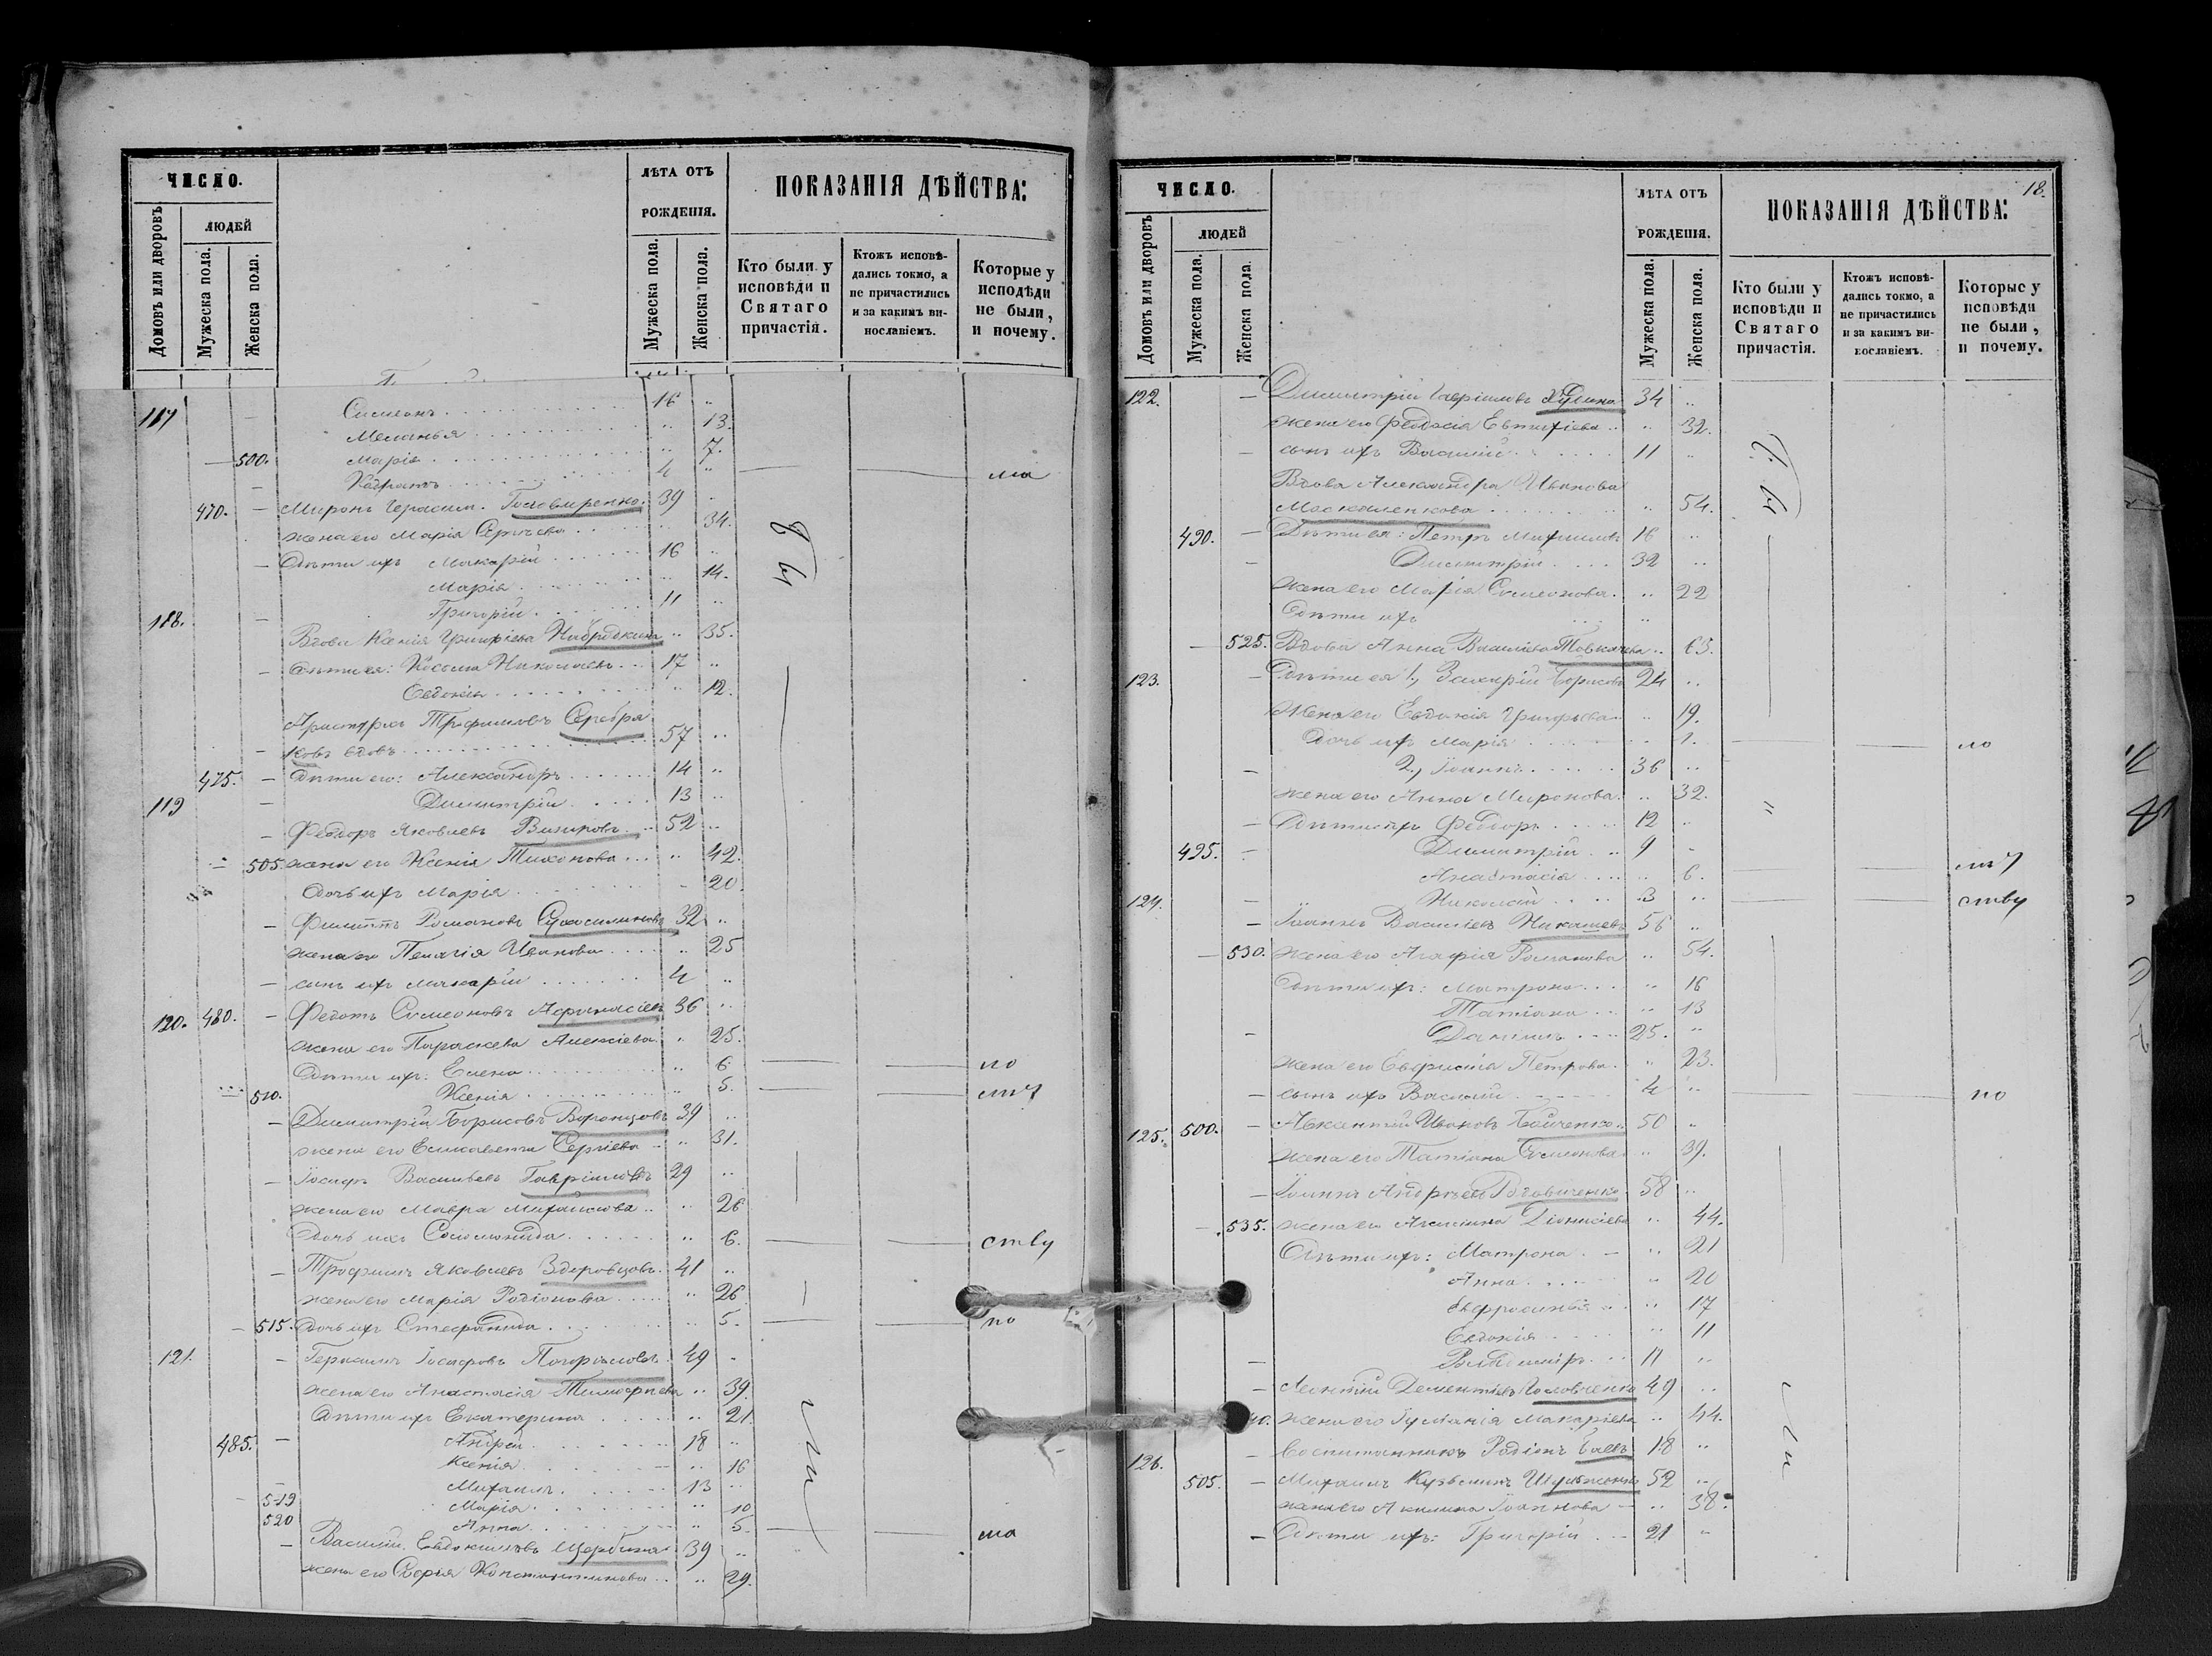 ЧИСЛО.
ЛѢТА ОТЪ РОЖДЕНІЯ.
ПОКАЗАНІЯ ДѢЙСТВА:
Домовъ или дворовъ.
ЛЮДЕЙ
Мужеска пола.
Женска пола.
Мужеска пола.
Женска пола.
Кто были у исповѣди и Святаго причастія.
Ктожъ исповѣдались токмо, а не причастились и за какимъ винославіемъ.
Которые у исповѣди не были, и почему.
117 Симеонъ 16
Меланья 13.
500. Марія 7.
Кодратъ 4 ма
470. Миронъ Герасим. 39
жена его Марія 34.
Дѣти ихъ Макарій 16
Марія 14.
Григорій 11
118. Вдова Ксенія Григоріева 35.
дѣти ея: Косьма Николаевъ 17
Евдокія 12.
Трофимовъ Серебря
ковъ вдовъ 57
475. дѣти его: Александръ 14
119 Димитрій 13
Феодоръ Яковлевъ 52
505. жена его Ксенія Тихонова 42.
дочь ихъ Марія 20.
Филиппъ Романовъ 32
жена его Пелагія Иванова 25
сынъ ихъ Макарій 4
120. 480. Федотъ Симеоновъ Афанасіевъ 36
жена его Параскева Алексіева 25.
Дѣти ихъ: Елена 6. по
510. Ксенія 5.
Димитрій Борисовъ Воронцовъ 39
жена его Елисавета Сергіева 31.
Іосифъ Васильевъ Гавріиловъ 29
жена его Мавра Михаилова 26
Дочь ихъ Соломонида 6. ству
Трофимъ Яковлевъ Здоровцовъ 41
жена его Марія Родіонова 26
515. Дочь ихъ Стефанида 5. по
121. Герасимъ Іосифовъ Погорѣловъ 49
жена его Анастасія Тимофеева 39.
Дѣти ихъ Екатерина 21.
485. Андрей 18
Ксенія 16
Михаилъ 13
519 Марія 10
520 Анна 5. ма
Василій Евдокимовъ Щербина 39
жена его Софія Константинова 29.
18.
ЧИСЛО.
ЛѢТА ОТЪ РОЖДЕНІЯ.
ПОКАЗАНІЯ ДѢЙСТВА:
Домовъ или дворовъ
ЛЮДЕЙ
Мужеска пола.
Женска пола.
Мужеска пола.
Женска пола.
Кто были у исповѣди и Святаго причастія.
Ктожъ исповѣдались токмо, а не причастились и за какимъ винославіемъ.
Которые у исповѣди не были, и почему.
122. Димитрій Гавріиловъ 34
жена его Феодосія Евтихіева 32.
сынъ ихъ Василій 11
Вдова Александра Иванова
Москаленкова 54.
490. Дѣти ея: Петръ Михаиловъ 16
Димитрій 32
жена его Марія Симеонова 22
Дѣти ихъ
525. Вдова Анна Василіева Товкачева 63.
123. Дѣти ея 1., Захарій Борисовъ 24
Жена его Евдокія Григорьева 19.
Дочь ихъ Марія 1. по
2., Іоаннъ 36
жена его Анна Миронова 32.
Дѣти ихъ Феодоръ 12
495. Димитрій 9
Анастасія 6.
124. Николай 3 ству
Іоаннъ Василіевъ 56
530. жена его Агафія Романова 54.
Дѣти ихъ: Матрона 16
Татіана 13
Даніилъ 25.
жена его Евфимія Петрова 23.
сынъ ихъ Василій 4 по
125. 500. Авксентій Ивановъ Бойченко 50
жена его Татіана Симеонова 39.
Іоаннъ Андреевъ 58
535. жена его Акилина Діонисіева 44.
Дѣти ихъ: Матрона 21
Анна 20
Евфросинья 17
Евдокія 11
Владиміръ 11
Леонтій Дементіевъ Головченко 49
жена его Іуліанія Макаріева 44.
126. Воспитанникъ Родіонъ 18
505. Михаилъ Кузьминъ 52
жена его Акилина Іоаннова 38.
Дѣти ихъ: Григорій 21